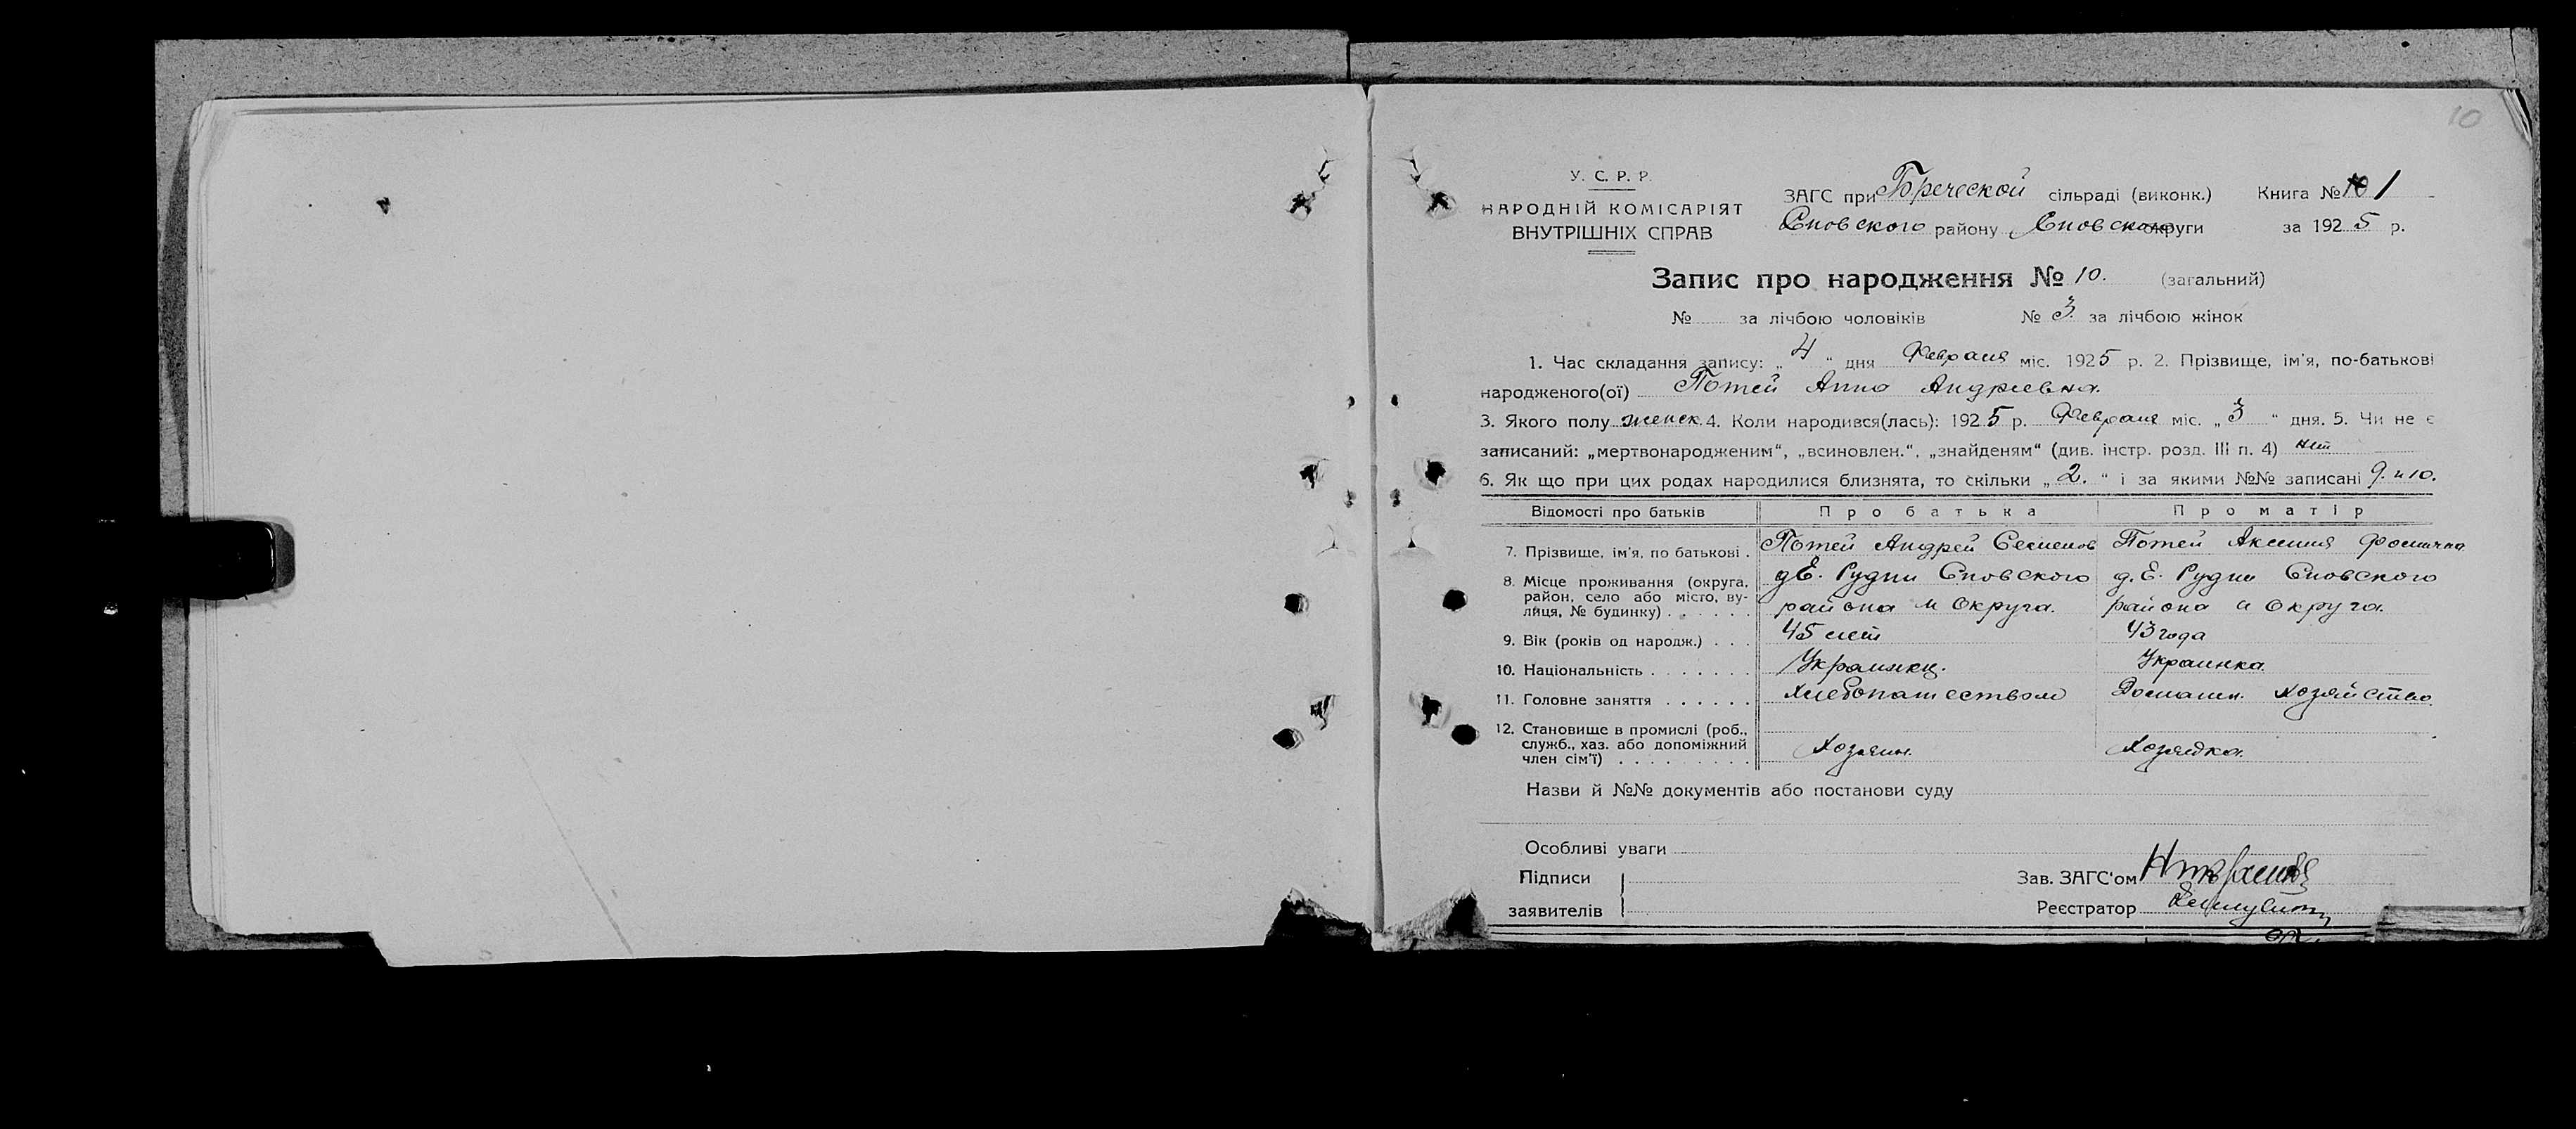 10
У. С. Р. Р.
НАРОДНІЙ КОМІСАРІЯТ
ВНУТРІШНІХ СПРАВ
ЗАГС при сільраді (виконк.) Книга № 1
Сновского району Сновского округи за 1925 р.
Запис про народження № 10. (загальний)
№ за лічбою чоловіків № 3. за лічбою жінок
1. Час складання запису: „ 4 “ дня Февраля міс. 1925 р. 2. Прізвище, ім'я, по-батькові
народженого(ої) Потей Анна Андреевна.
3. Якого полу женск. 4. Коли народився(лась): 1925 р. Февраля міс. „ 3 “ дня. 5. Чи не є
записаний: „мертвонародженим“, „всиновлен.“, „знайденям“ (див. інстр. розд. III п. 4) нет
6. Як що при цих родах народилися близнята, то скільки „ 2. “ і за якими №№ записані 9. и 10.
Відомості про батьків Про батька Про матір
7. Прізвище, ім'я, по батькові . Потей Андрей Семенов Потей Аксиния Фомична
8. Місце проживання (округа, район, село або місто, ву- лиця, № будинку) . . . . . . д Е. Рудни Сновского района и Округа. д. Е. Рудни Сновского района и округа.
9. Вік (років од народж.) . . . 45 лет 43 года
10. Національність . . . . . . . Украинец. Украинка.
11. Головне заняття . . . . . . Хлебопашеством Домашн. хозяйство
12. Становище в промислі (роб., служб., хаз. або допоміжний член сім'ї) . . . . . . . . . Хозяин. Хозяйка.
Назви й №№ документів або постанови суду
Особливі уваги
Підписи
заявителів
Зав. ЗАГС'ом
Реєстратор